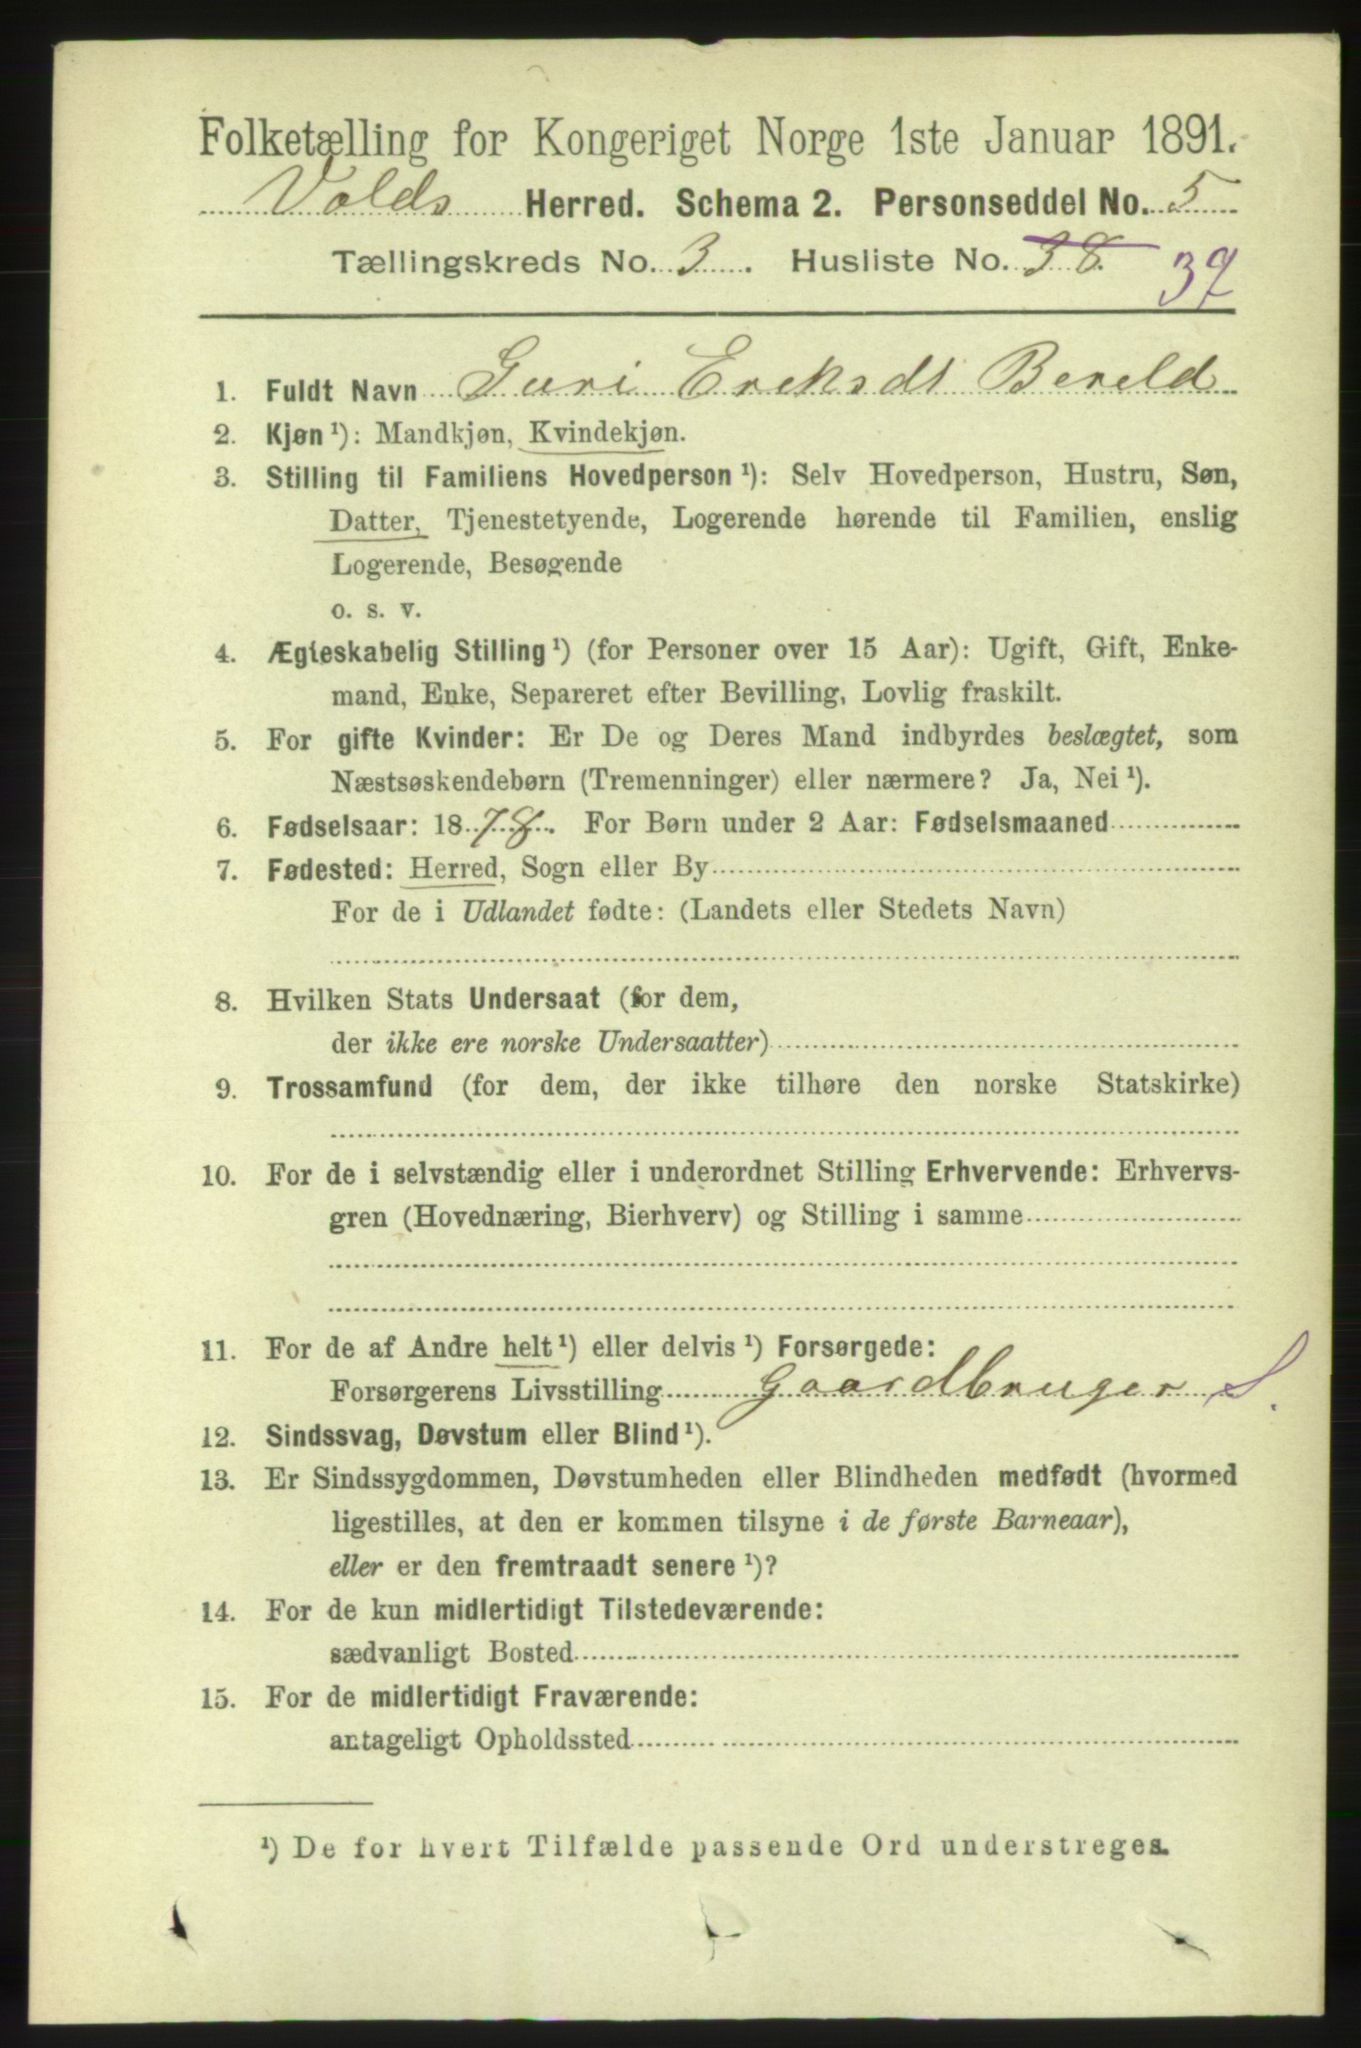 Folketælling for Kongeriget Norge 1ste Januar 1891.
Volds Herred. Schema 2. Personseddel No. 5
Tællingskreds No. 3. Husliste No. 38. 37
1. Fuldt Navn Guri Eriksdt Bereld
2. Kjøn ¹): Mandkjøn, Kvindekjøn.
3. Stilling til Familiens Hovedperson ¹): Selv Hovedperson, Hustru, Søn,
Datter, Tjenestetyende, Logerende hørende til Familien, enslig
Logerende, Besøgende
o. s. v.
4. Ægteskabelig Stilling ¹) (for Personer over 15 Aar): Ugift, Gift, Enke-
mand, Enke, Separeret efter Bevilling, Lovlig fraskilt.
5. For gifte Kvinder: Er De og Deres Mand indbyrdes beslægtet, som
Næstsøskendebørn (Tremenninger) eller nærmere? Ja, Nei ¹).
6. Fødselsaar: 1878. For Børn under 2 Aar: Fødselsmaaned
7. Fødested: Herred, Sogn eller By
For de i Udlandet fødte: (Landets eller Stedets Navn)
8. Hvilken Stats Undersaat (for dem,
der ikke ere norske Undersaatter)
9. Trossamfund (for dem, der ikke tilhøre den norske Statskirke)
10. For de i selvstændig eller i underordnet Stilling Erhvervende: Erhvervs-
gren (Hovednæring, Bierhverv) og Stilling i samme
11. For de af Andre helt ¹) eller delvis ¹) Forsørgede:
Forsørgerens Livsstilling Gaardbruger S.
12. Sindssvag, Døvstum eller Blind ¹).
13. Er Sindssygdommen, Døvstumheden eller Blindheden medfødt (hvormed
ligestilles, at den er kommen tilsyne i de første Barneaar),
eller er den fremtraadt senere ¹)?
14. For de kun midlertidigt Tilstedeværende:
sædvanligt Bosted
15. For de midlertidigt Fraværende:
antageligt Opholdssted
¹) De for hvert Tilfælde passende Ord understreges.